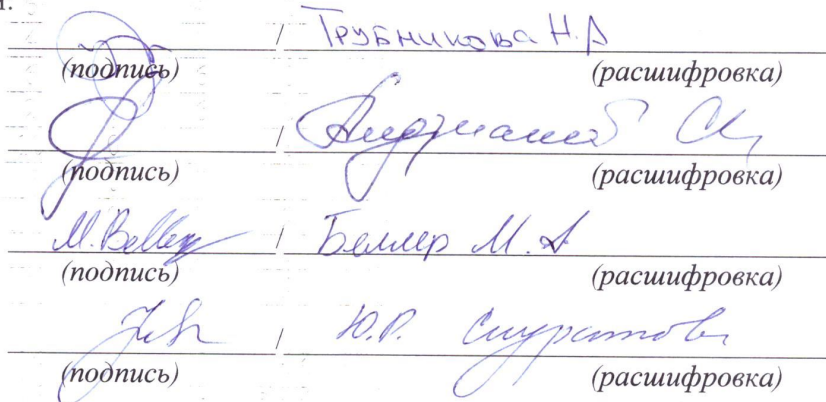 / Трубникова Н.А
(подпись) (расшифровка)
/
(подпись) (расшифровка)
M. Beller / Беллер М.А
(подпись) (расшифровка)
/ Ю.Р.
(подпись) (расшифровка)